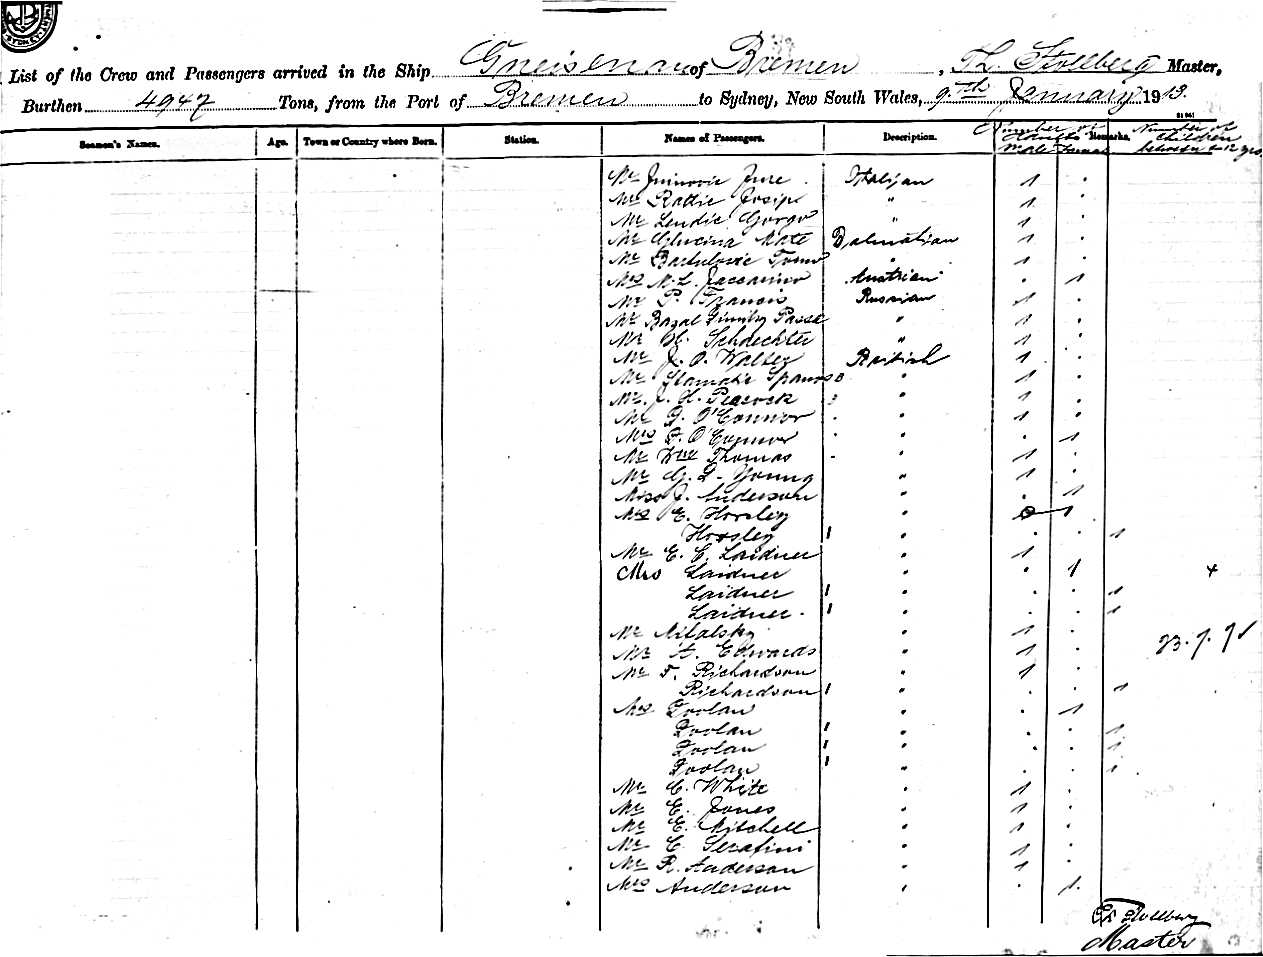 SYDNEY
List of the Crew and Passengers arrived in the Ship Gneisenau of Bremen, Th. Stollberg Master,
Burthen 4947 Tons, from the Port of Bremen to Sydney, New South Wales, 9th January 1913.
Seamen's Names. Age. Town or Country where Born. Station. Names of Passengers. Description. Number of Adults Male Female Remarks. Number of Children between 1-12 yrs.
Mr Jure Italian 1
Mr Rattie Josip " 1
Mr Lendic Gorgo " 1
Mr Glucina Mate Dalmatian 1
Mr Bartulovic Toma " 1
Mrs M. L. Austrian 1
Mr P. Francis Russian 1
Mr " 1
Mr H. Schdechter " 1
Mr J. O. Walter British 1
Mr Stamatie " 1
Mr J. H. Peacock " 1
Mr D. O'Connor " 1
Mrs D. O'Connor " 1
Mr Wm Thomas " 1
Mr G. L. Young " 1
Miss J. Anderson " 1
Mrs E. Horsley " 1
Horsley 1 " 1
Mr E. C. Laidner " 1
Mrs Laidner " 1
Laidner 1 " 1
Laidner 1 " 1
Mr " 1
Mr A. Edwards " 1
Mr F. Richardson " 1
Richardson 1 " 1
Mrs Doolan " 1
Doolan 1 " 1
Doolan 1 " 1
Doolan 1 " 1
Mr C. White " 1
Mr E. Jones " 1
Mr E. Mitchell " 1
Mr C. Serafini " 1
Mr R. Anderson " 1
Mrs Anderson " 1
Th Stollberg
Master